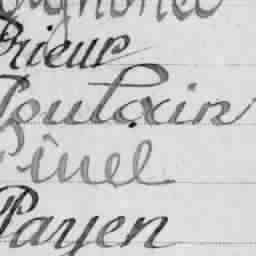 Prieur
Poulain
Pinel
Payen